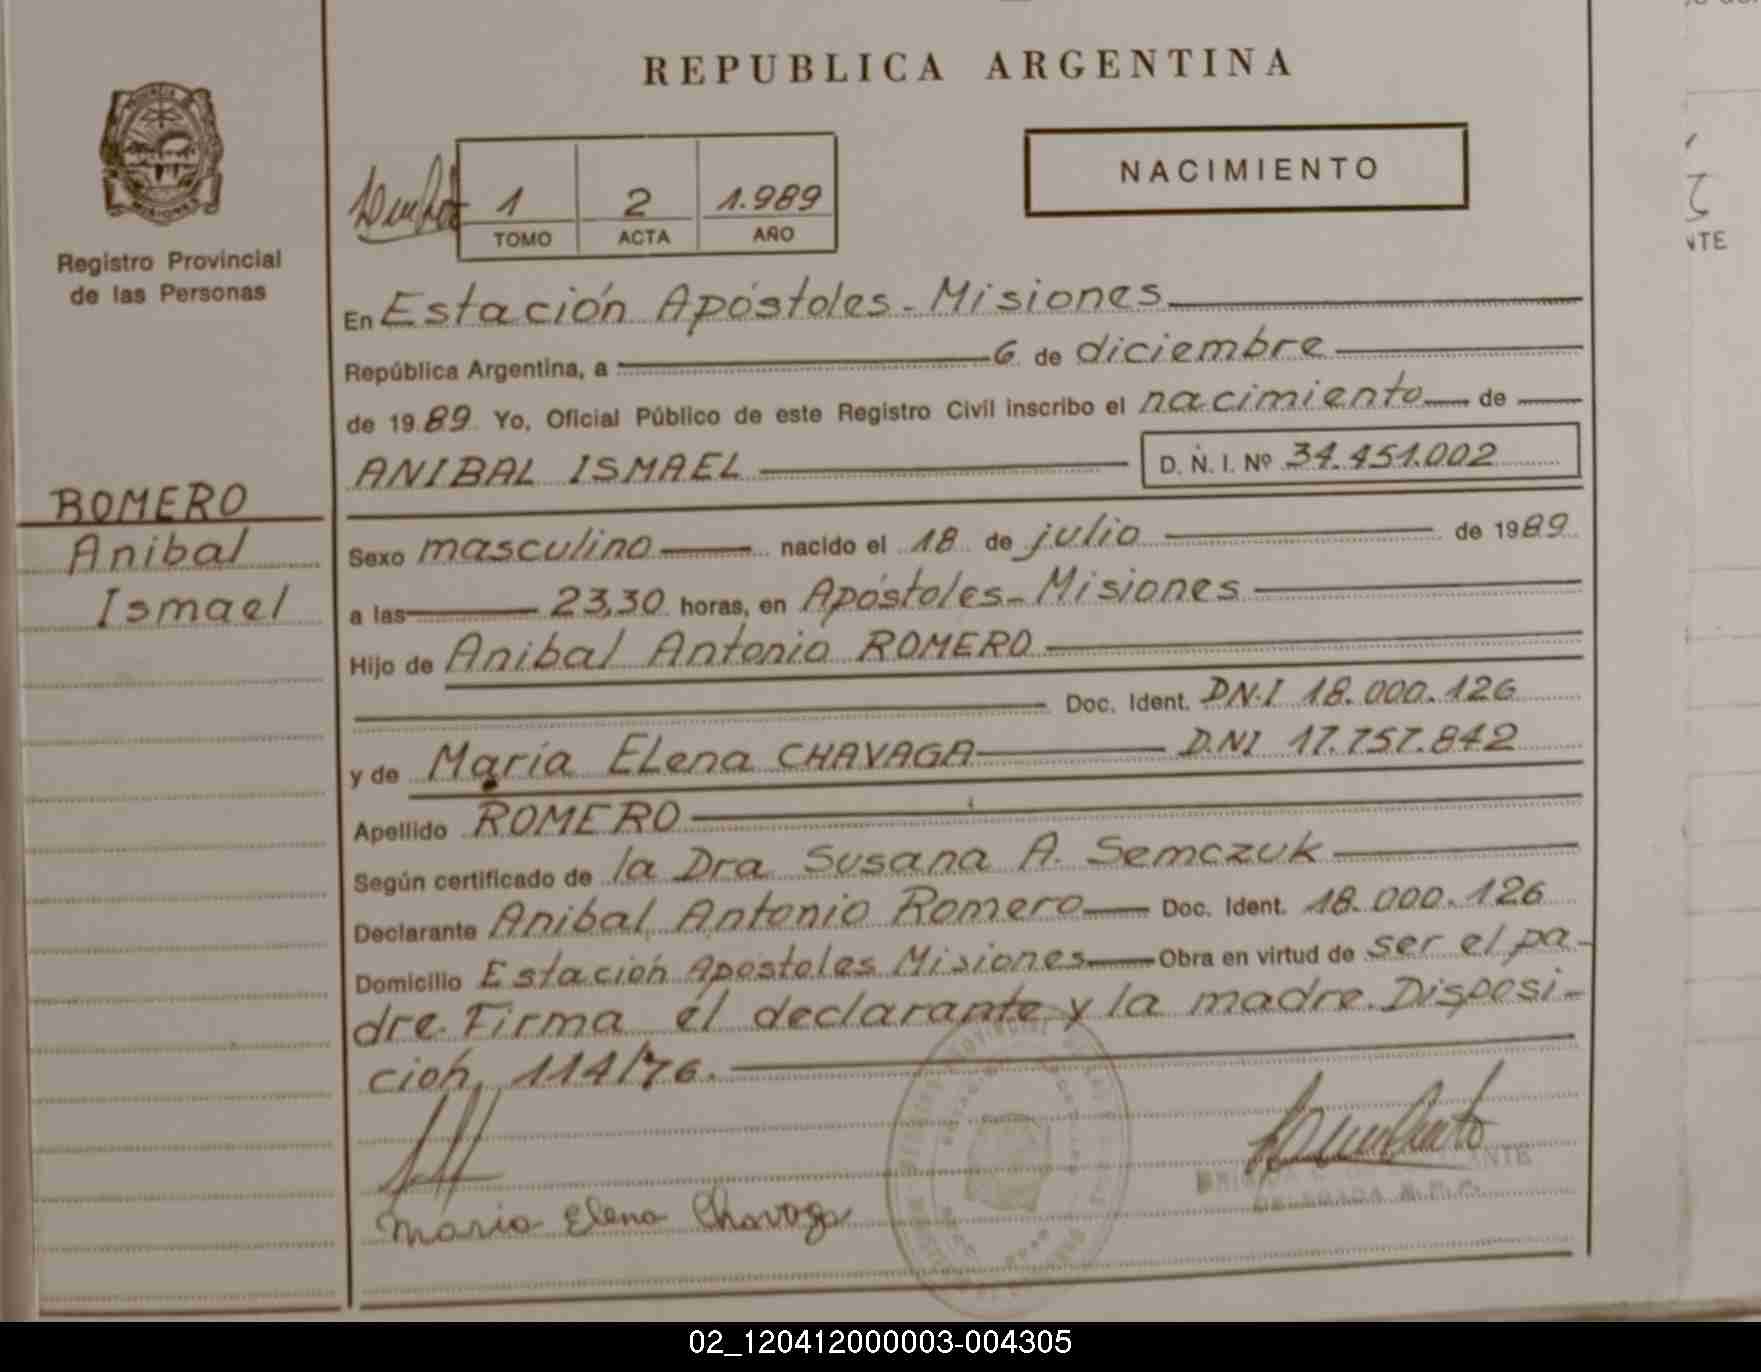 REPUBLICA ARGENTINA
NACIMIENTO
1 2 1.989
TOMO ACTA AÑO
MISIONES
Registro Provincial
de las Personas
ROMERO
Anibal
Ismael
En Estación Apóstoles-Misiones
República Argentina, a 6 de diciembre
de 1989 Yo, Oficial Público de este Registro Civil inscribo el nacimiento de
ANIBAL ISMAEL D. N. I. Nº 34.451.002
Sexo masculino nacido el 18 de julio de 1989
a las 23,30 horas, en Apóstoles-Misiones
Hijo de Anibal Antonio ROMERO
Doc. Ident. DN·I 18.000.126
y de María Elena CHAVAGA D.NI 17.757.842
Apellido ROMERO
Según certificado de la Dra Susana A. Semczuk
Declarante Anibal Antonio Romero Doc. Ident. 18.000.126
Domicilio Estación Apostoles Misiones Obra en virtud de ser el pa-
dre. Firma el declarante y la madre. Disposi-
ción, 114/76.
Maria Elena Chavaga
02_120412000003-004305